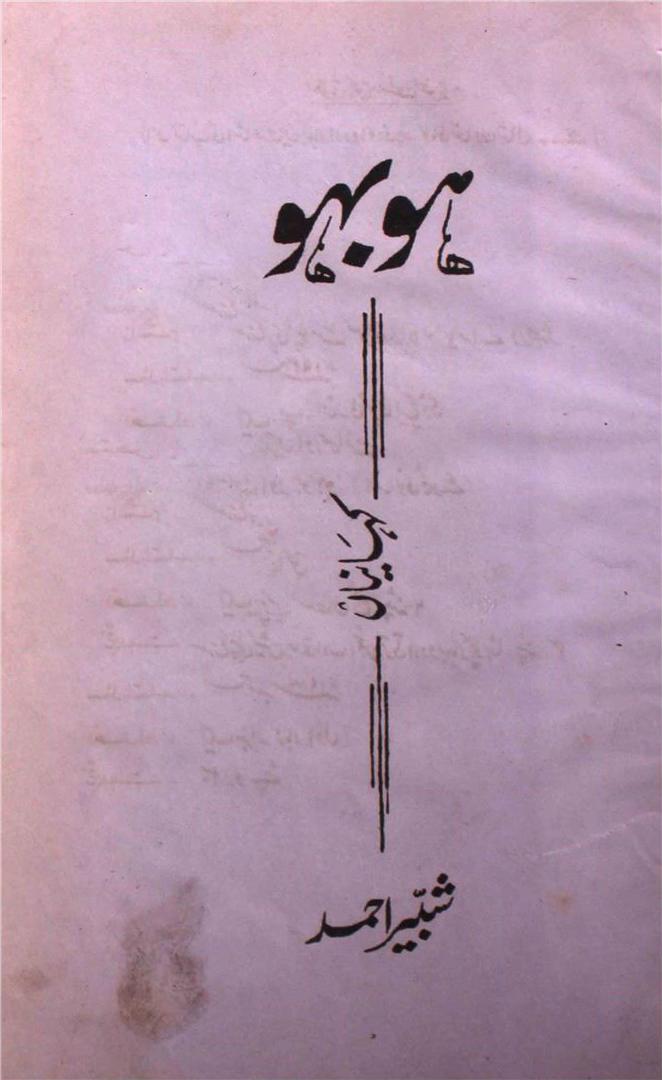 ہو بہو
کہانیاں
شبّیر احمد